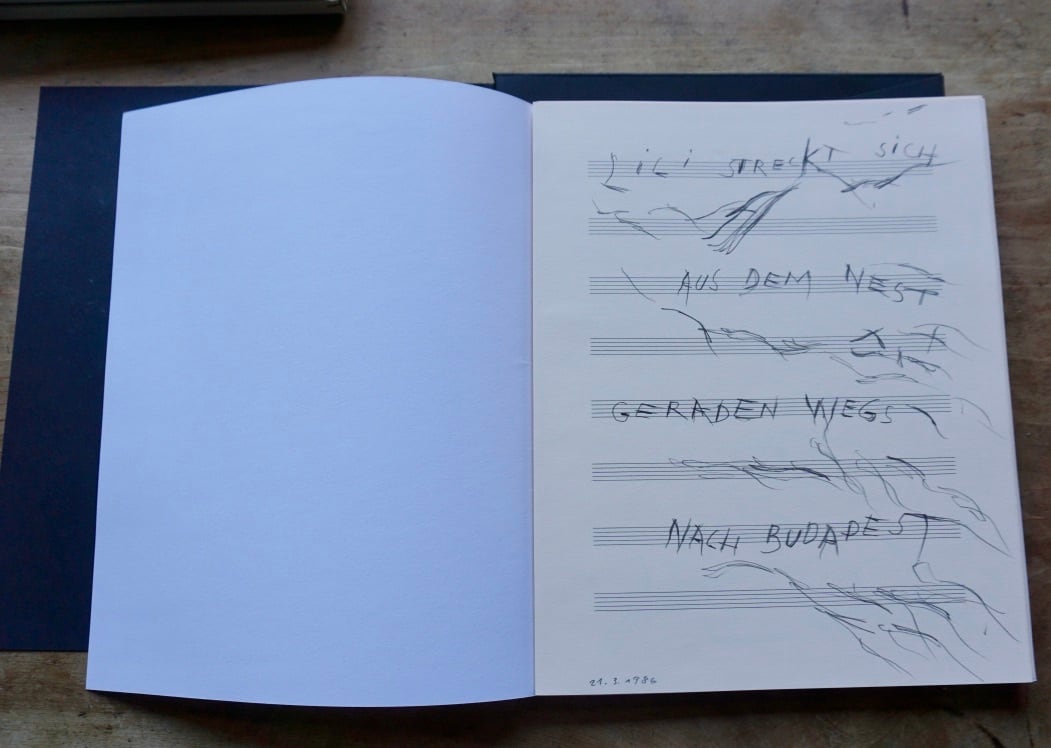 LiLi STRECKT SiCH
AUS DEM NEST
GERADEN WEGS
NACH BUDAPEST
21.3.1986